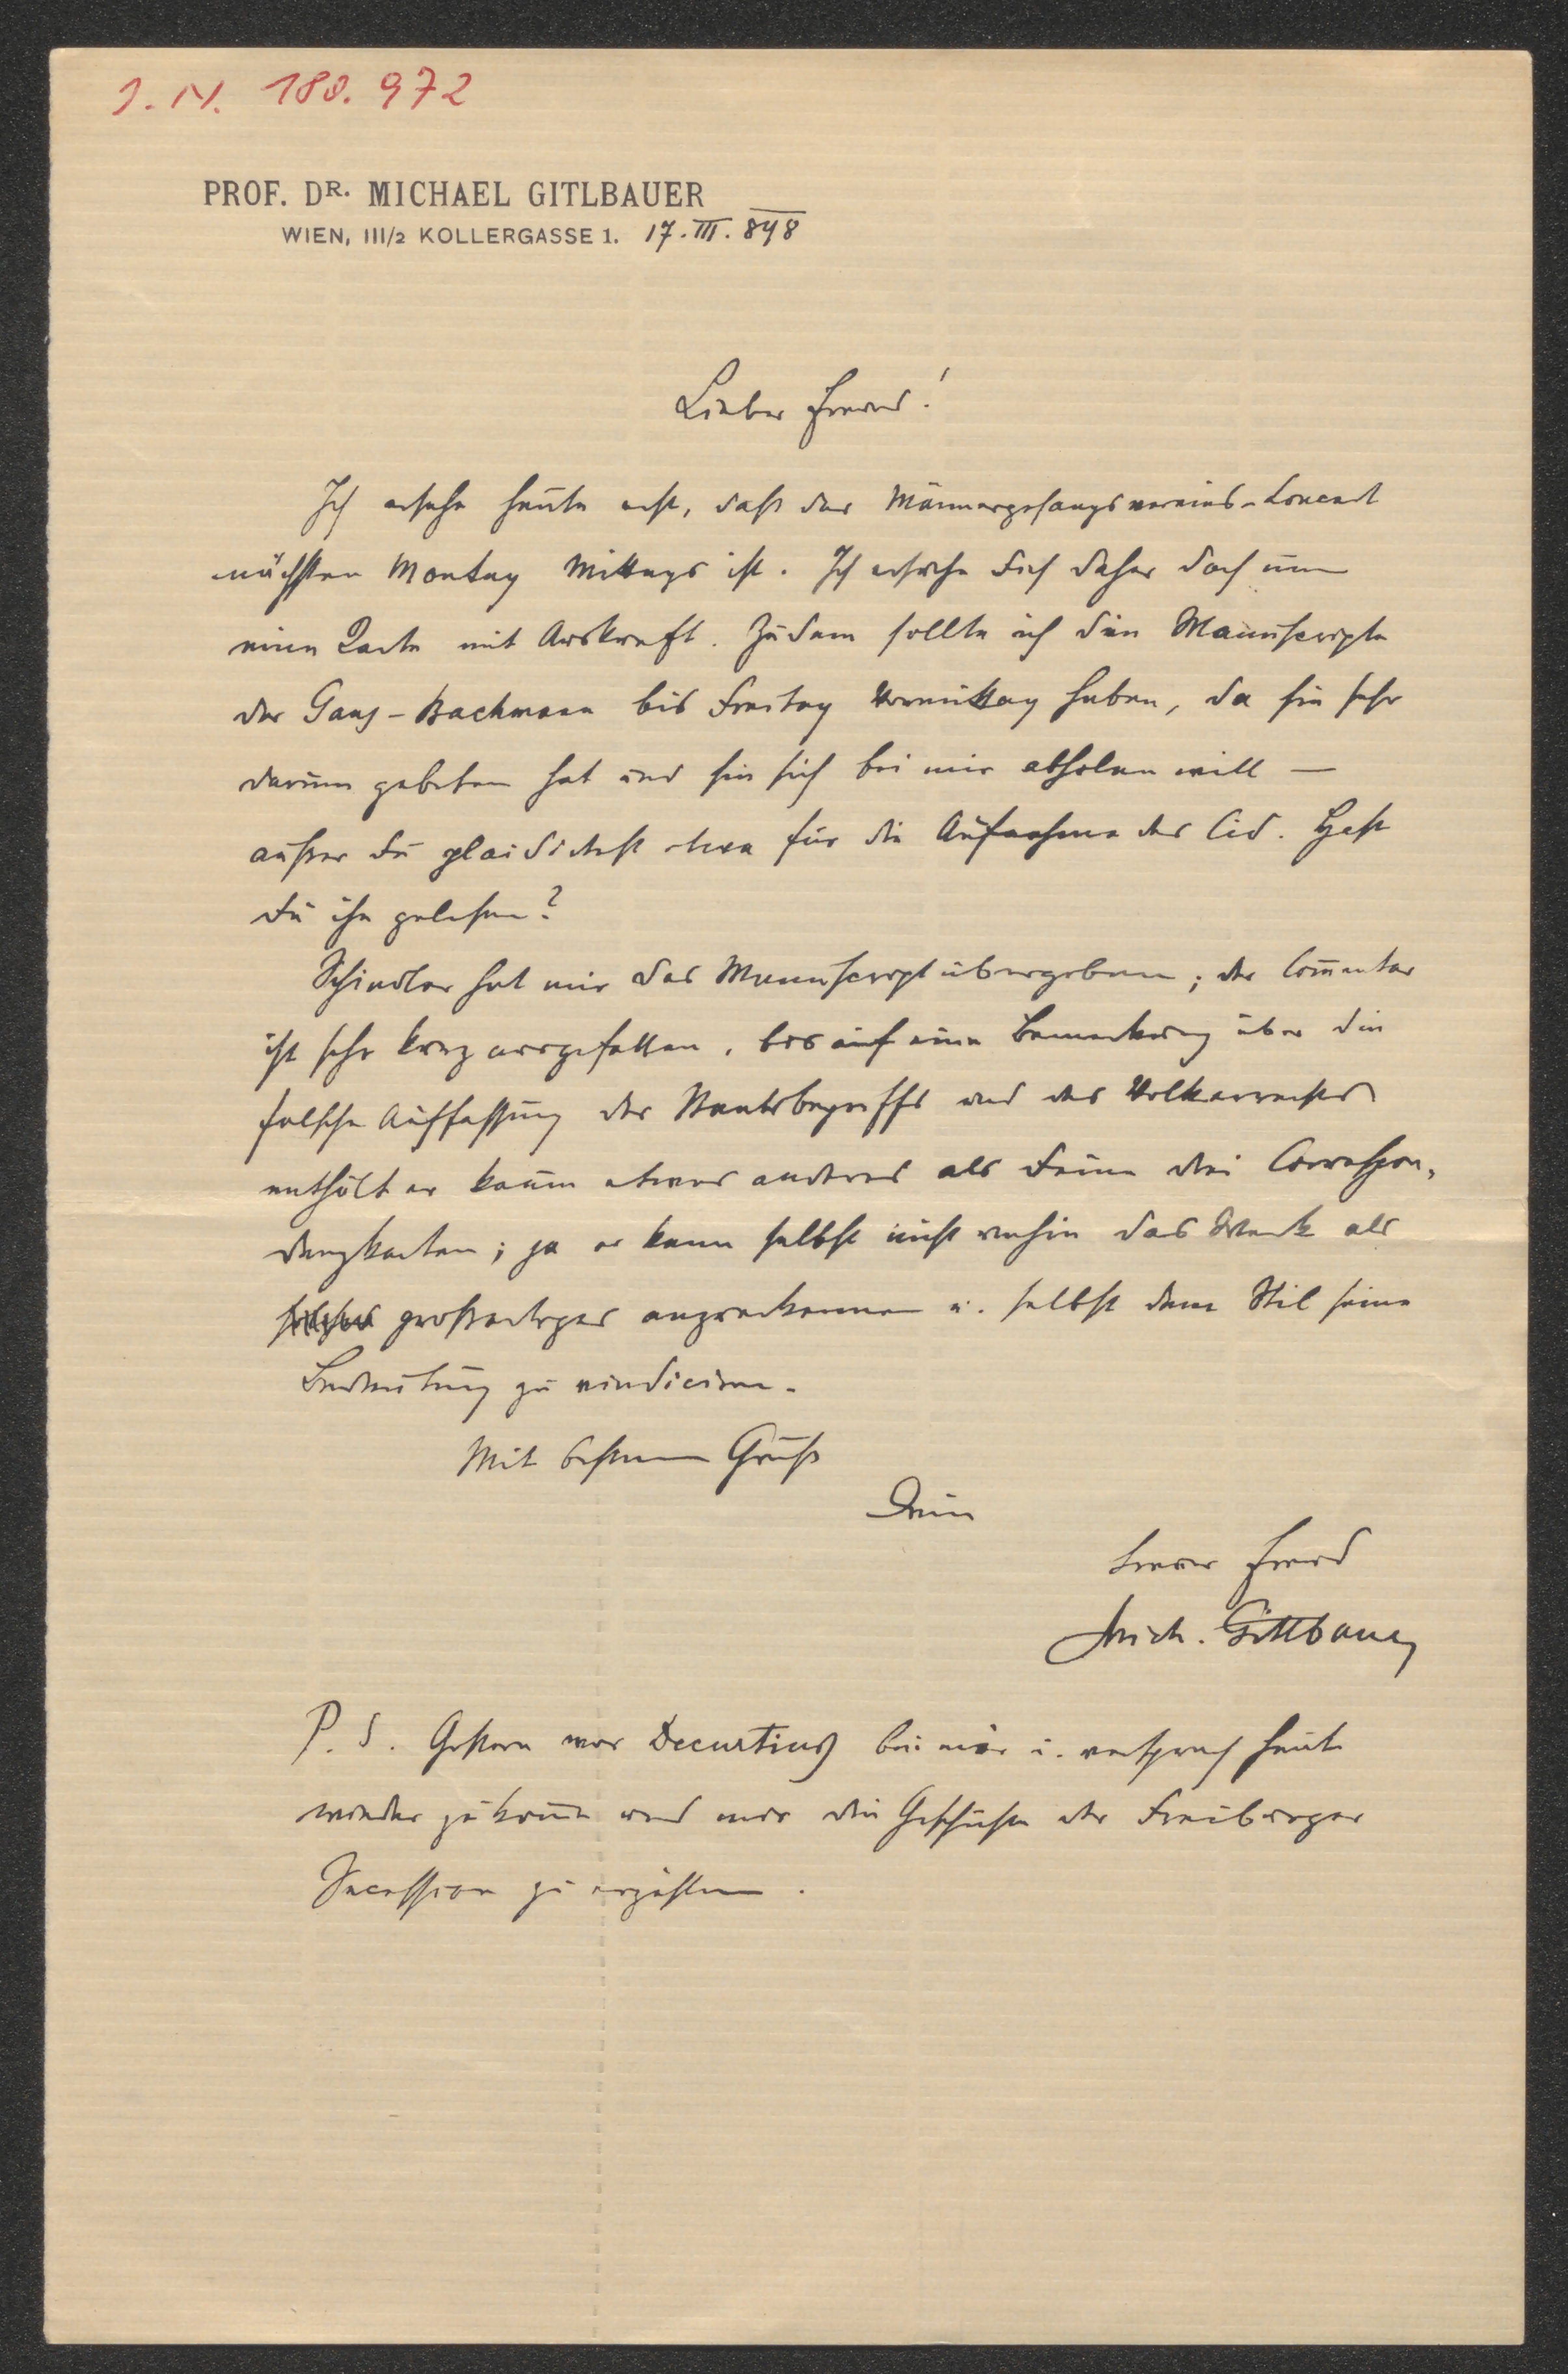 J. N. 180.972
PROF. DR. MICHAEL GITLBAUER
WIEN, III/2 KOLLERGASSE 1. 17. III. 898
Lieber Freund!
Ich ersehe heute erst, daß das Männergesangsvereins-Concert
nächsten Montag Mittags ist. Ich ersuche Dich daher doch um
eine Karte mit Auskunft. Zudem sollte ich die Manuscripte
der Gans-Bachmann bis Freitag Vormittag haben, da sie sehr
darum gebeten hat und sie sich bei mir abholen will —
außer Du plaidirst etwa für die Aufnahme des Cid. Hast
Du ihn gelesen?
Schindler hat mir das Manuscript übergeben; der Com̄entar
ist sehr kurz ausgefallen, bis auf eine Bemerkung über die
falsche Auffassung des Staatsbegriffs und des Völkerrechtes
enthält er kaum etwas anderes als Deine drei Correspon-
denzkarten; ja er kann selbst nicht umhin das Werk als
großartiges anzuerkennen u. selbst dem Stil seine
Bedeutung zu vindiciren.
Mit bestem Gruß
Dein
treuer Freund
Mich. Gitlbauer
P. S. Gestern war Decurtins bei mir u. versprach heute
wieder zu kom̄en und mir die Geschichte der Freiburger
Secession zu erzählen.